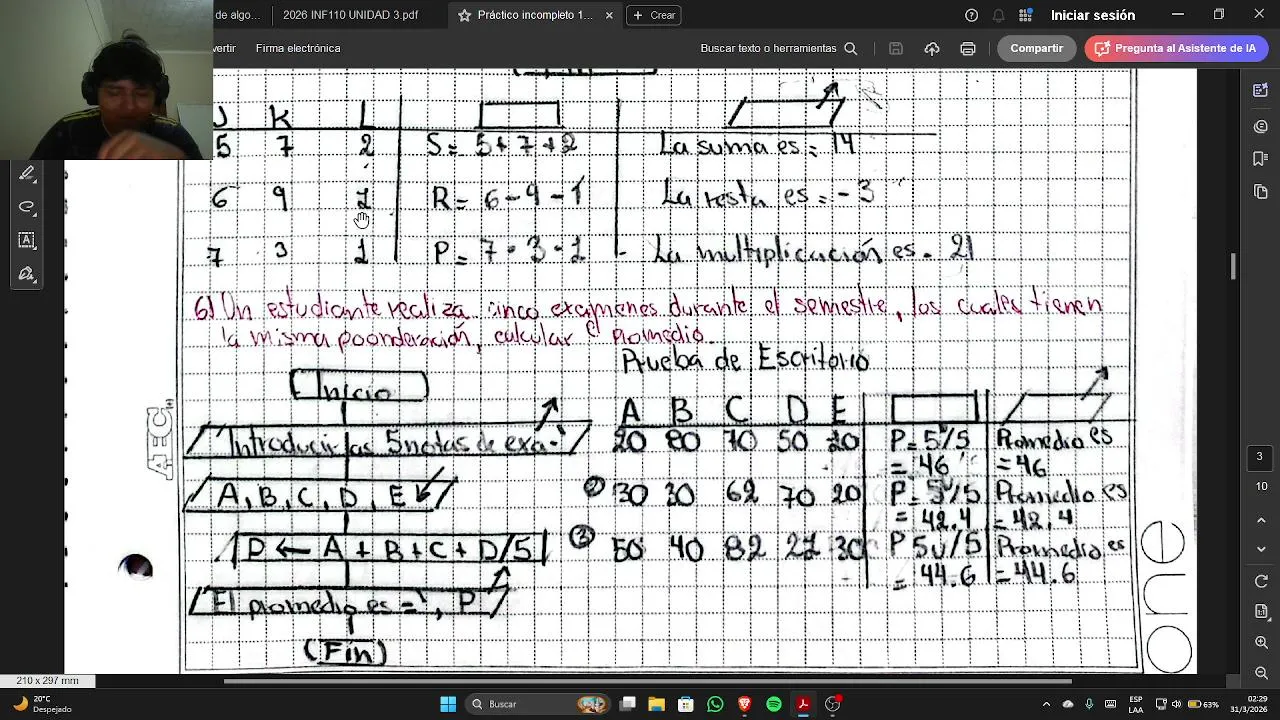 de algo...
2026 INF110 UNIDAD 3.pdf
Práctico incompleto 1...
Crear
Iniciar sesión
vertir
Firma electrónica
Buscar texto o herramientas
Compartir
Pregunta al Asistente de IA
J K L
5 7 2 S = 5+7+2 La suma es = 14
6 9 1 R = 6-9-1 La resta es = -3
7 3 1 P = 7·3·1 La multiplicación es = 21
6) Un estudiante realiza cinco examenes durante el semestre, los cuales tienen
la misma poonderación, calcular el promedio.
Prueba de Escritorio
Inicio
A B C D E
"Introducir las 5 notas de exa-"
20 80 70 50 20 P= 5v/5 Promedio es
= 46 = 46
A, B, C, D, E
② 30 30 62 70 20 P= 5v/5 Promedio es
= 42.4 = 42.4
P ← A + B + C + D/5
③ 50 40 82 21 30 P 5v/5 Promedio es
= 44.6 = 44.6
"El promedio es =", P
(Fin)
ATEC
one
3
10
210 x 297 mm
20°C
Despejado
Buscar
ESP
LAA
63%
02:29
31/3/2026